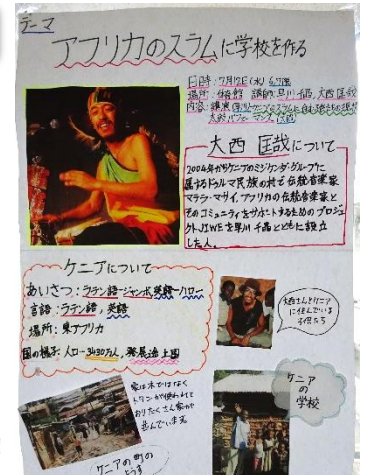 テーマ
アフリカのスラムに学校を作る
日時：7月17日(水) 6,7限
場所：体育館 講師：早川 千晶、大西 匡哉
大西 匡哉について
2004年からケニアのミジケンダ・グループに
属するドゥルマ民族の村で伝統音楽家
マテラ・マサイ、アフリカの伝統音楽と
そのコミュニティをサポートするためのプロジェ
クトJIWEを早川 千晶とともに設立
した人。
ケニアについて
あいさつ：ラテン語-ジャンボ,英語-ハロー
言語：ラテン語，英語
場所：東アフリカ
国の様子：人口-3430万人,発展途上国
大西さんとケニア
に住んでいる
子供たち
家は木ではなく
トタンが使われて
おりたくさん家が
並んでいます
ケニアの町の
ようす
ケニア
の
学校